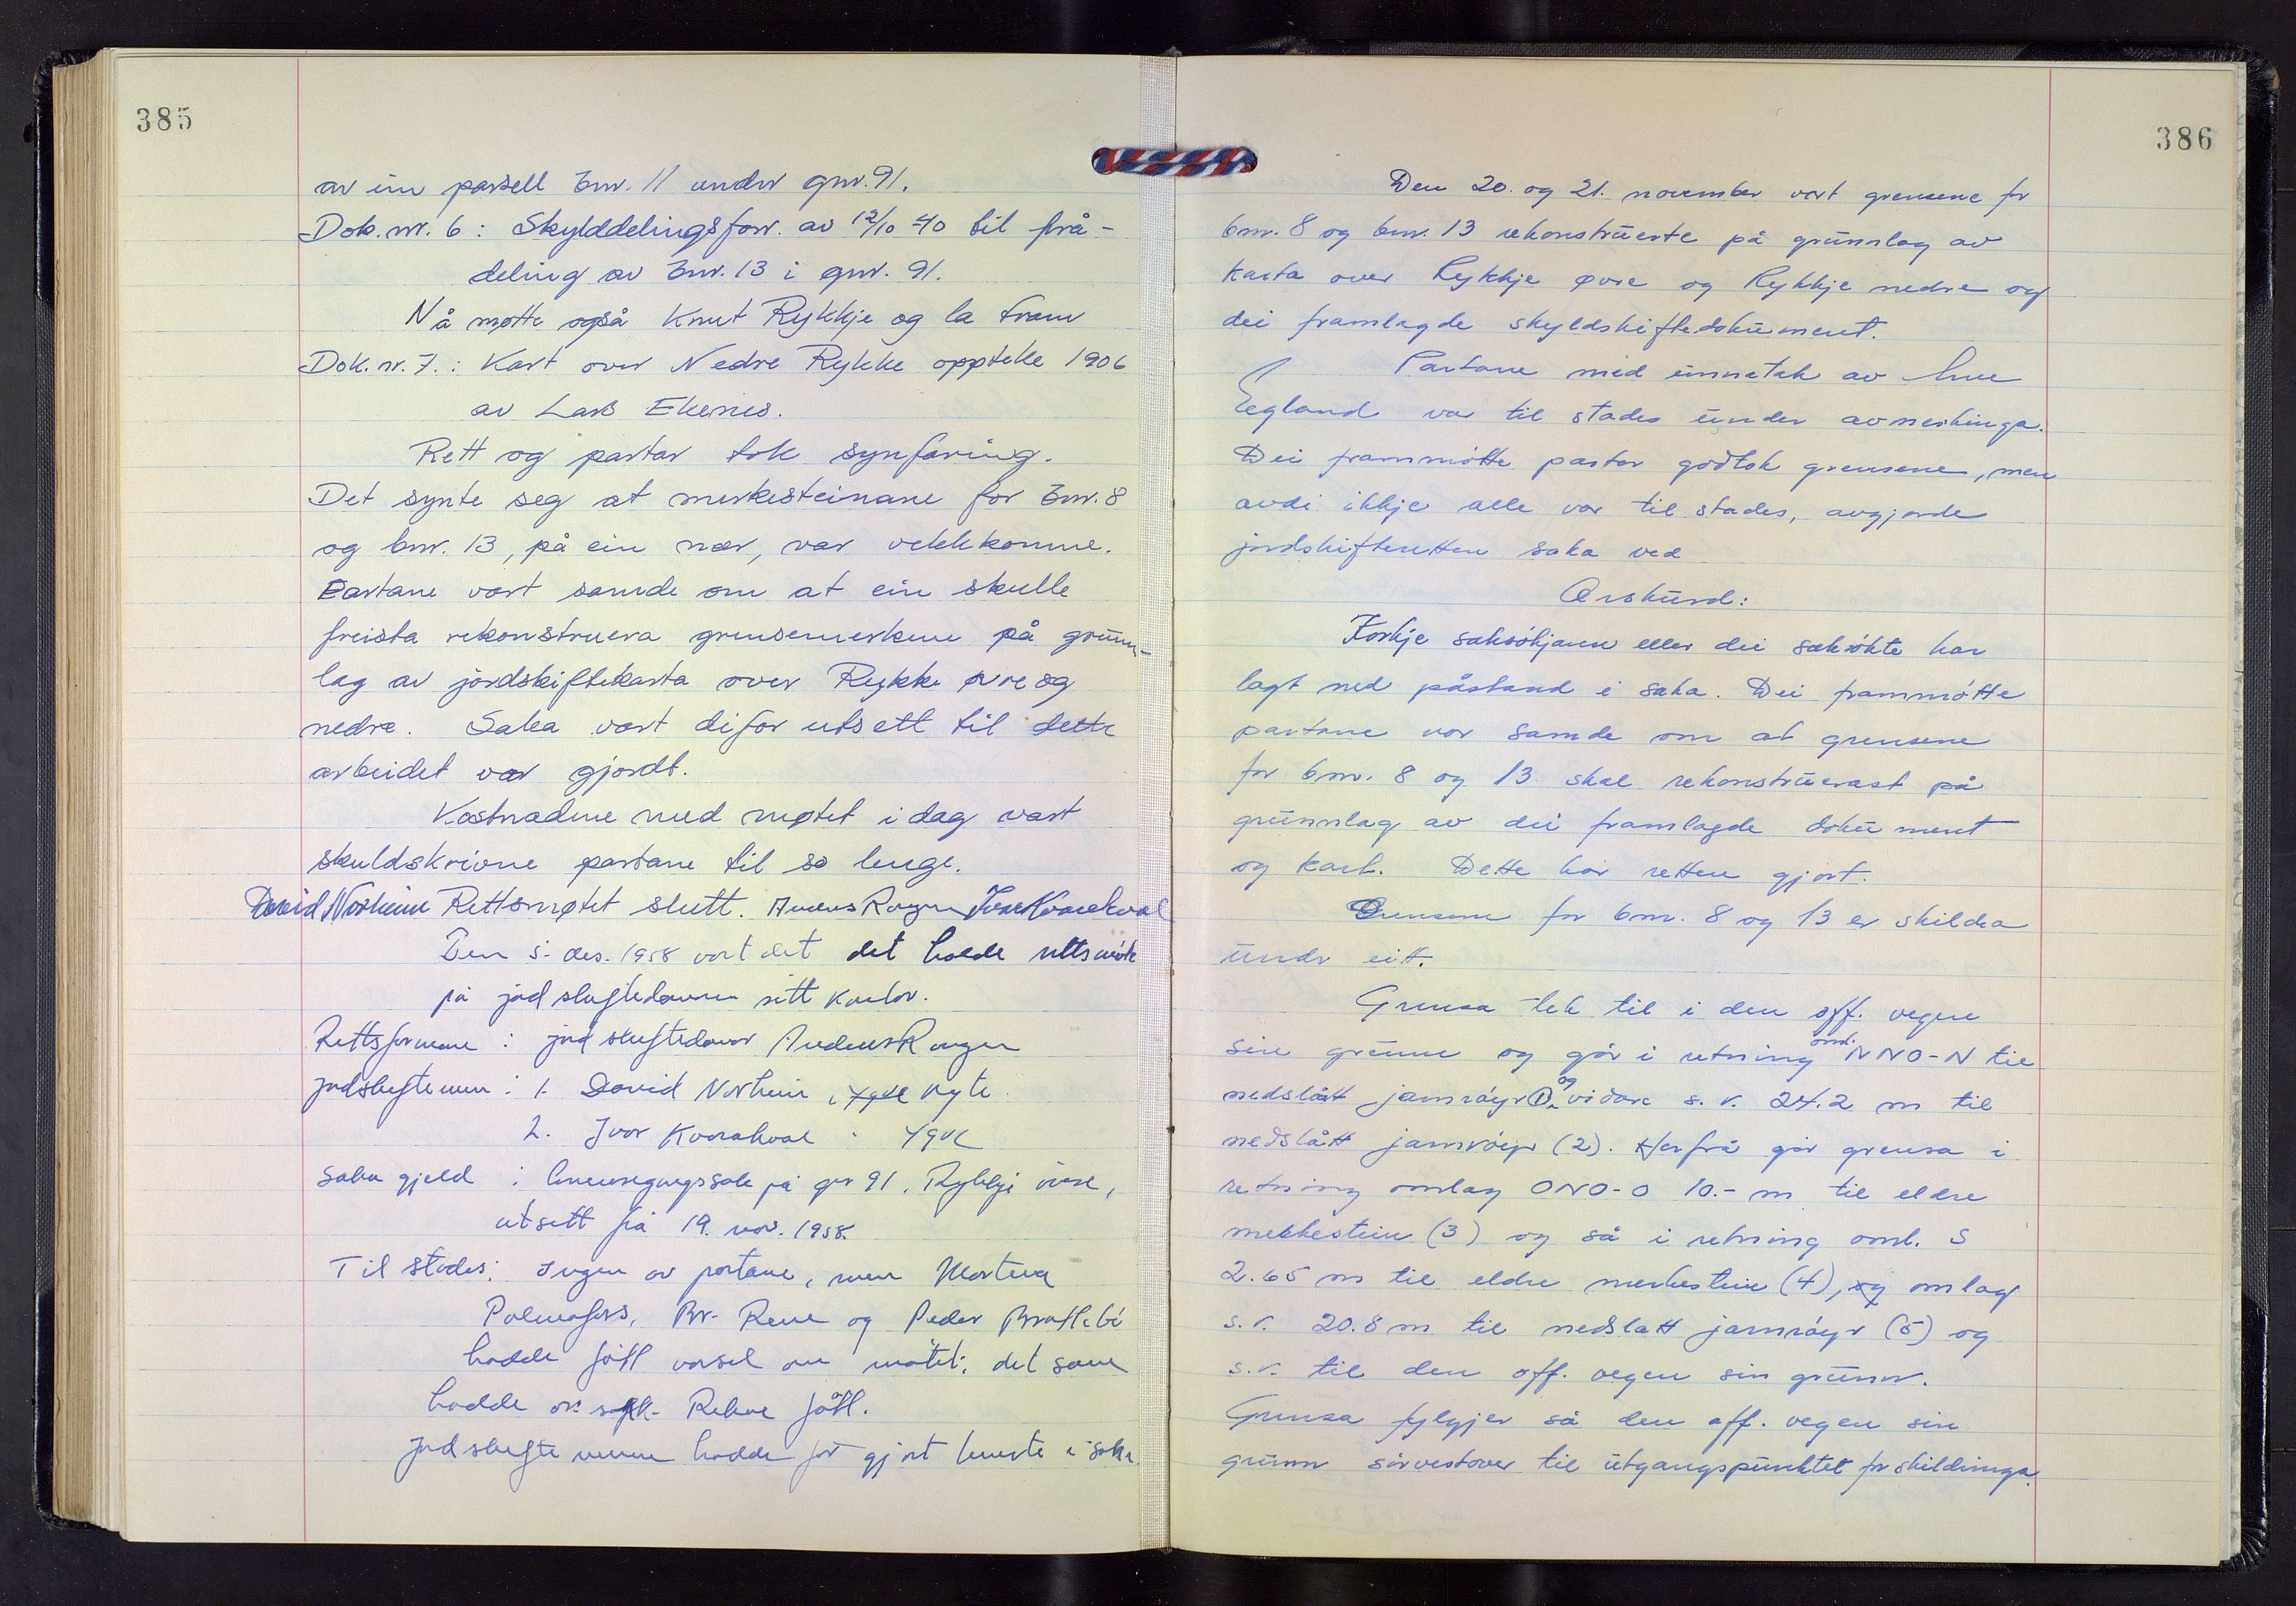 385
av ein parsell bnr. 11 under gnr. 91.
Dok. nr. 6: Skylddelingsforr. av 12/10-40 til frå-
deling av bnr. 13 i gnr. 91.
Nå møtte også Knut Rykkje og la fram
Dok. nr. 7.: Kart over Nedre Rykke oppteke 1906
av Lars Ekenes.
Rett og partar tok synfaring.
Det synte seg at merkesteinane for bnr. 8
og bnr. 13, på ein nær, var vekkkomne.
Partane vart samde om at ein skulle
freista rekonstruera grensemerkene på grunn-
lag av jordskiftekarta over Rykke øvre og
nedre. Saka vart difor utsett til dette
arbeidet var gjordt.
Kostnadene med møtet i dag vart
skuldskrivne partane til so lenge.
David Norheim Rettsmøtet slutt. Anders Ivar Kvarekval
Den 5. des. 1958 vart det det halde rettsmöte
på jordskiftedomaren sitt kontor.
Rettsformann: jordskiftedomar Anders
Jordskiftemenn: 1. David Norheim,
2. Ivar " 
Saka gjeld: på gnr 91, Rykkje övre,
utsett frå 19. nov. 1958.
Til stades: Ingen av partane, men
og Peder
hadde fått varsel om mötet; det same
hadde fått.
Jordskiftemennene hadde för gjort teneste i saka.
386
Den 20. og 21. november vart grensene for
bnr. 8 og bnr. 13 rekonstruerte på grunnlag av
karta over Rykkje øvre og Rykkje nedre og
dei framlagde skyldskiftedokument.
Partane med unnatak av
Eegland var til stades under avmerkinga.
Dei frammøtte partar godtok grensene, men
avdi ikkje alle var til stades, avgjorde
jordskifteretten saka ved
Orskurd:
Korkje saksökjaren eller dei saksökte har
lagt ned påstand i saka. Dei frammötte
partane var samde om at grensene
for bnr. 8 og 13 skal rekonstruerast på
grunnlag av dei framlagde dokument
og kart. Dette har retten gjort.
Grensene for bnr. 8 og 13 er skildra
under eitt.
Grensa tek til i den off. vegen
sin grunn og går i retning oml. NNO-N til
nedslått jarnröyr (1) og vidare s. r. 24.2 m til
nedslått jarnröyr (2). Herfrå går grensa i
retning omlag ONO-O 10.- m til eldre
merkestein (3) og så i retning oml. S
2.65 m til eldre merkestein (4), og omlag
s.r. 20.8 m til nedslått jarnröyr (5) og
s.r. til den off. vegen sin grunn.
Grensa fylgjer så den off. vegen sin
grunn sörvestover til utgangspunktet for skildringa.